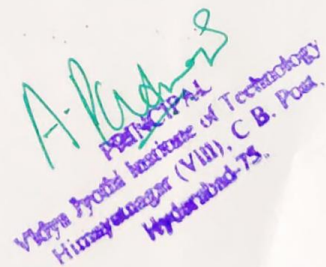 A. Padmaja
PRINCIPAL
Vidya Jyothi Institute of Technology
Himayatnagar (Vill), C B. Post,
Hyderabad-75.